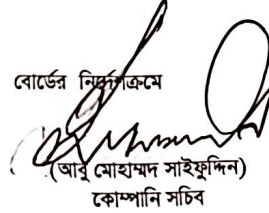 বোর্ডের নির্দেশক্রমে
(আবু মোহাম্মদ সাইফুদ্দিন)
কোম্পানি সচিব